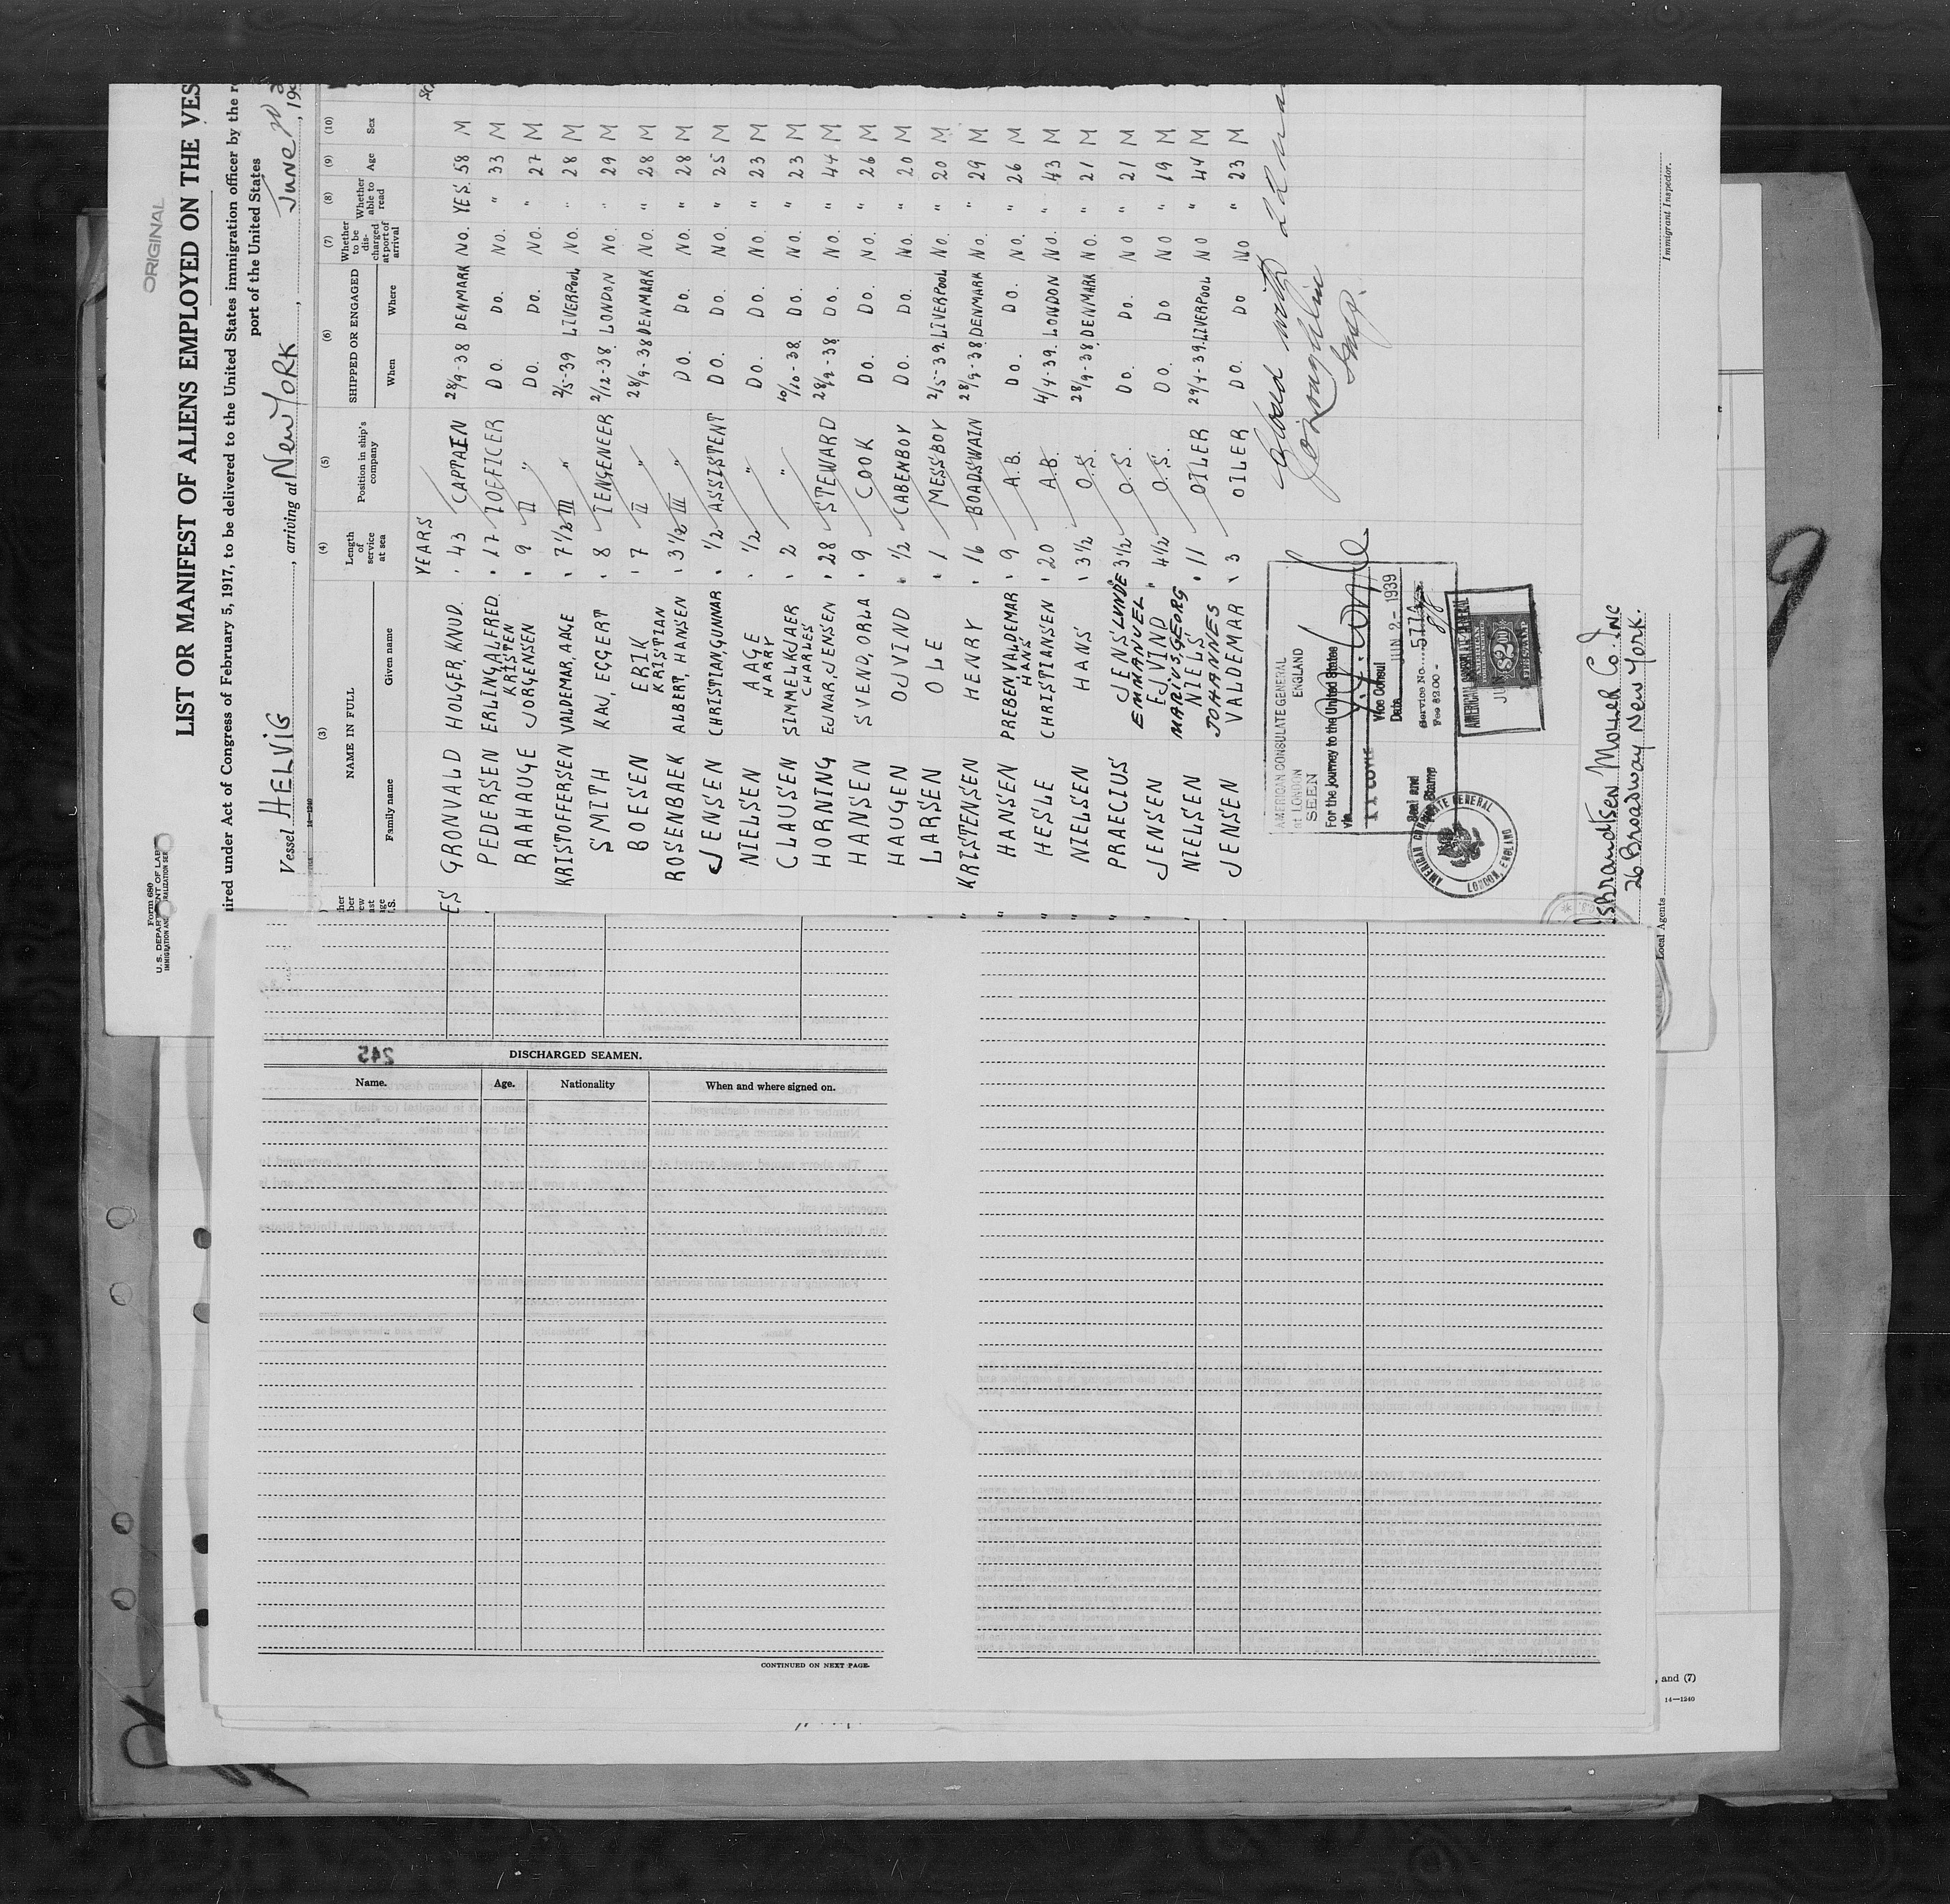 ORIGINAL
Form 680
U. S. DEPARTMENT OF LAB
LIST OR MANIFEST OF ALIENS EMPLOYED ON THE VES
uired under Act of Congress of February 5, 1917, to be delivered to the United States immigration officer by the r
port of the United States
Vessel HELVIG, arriving at New York, June, 19
14-1240
(3) (4) (5) (6) (7) (8) (9) (10)
NAME IN FULL Length of service at sea Position in ship's company SHIPPED OR ENGAGED Whether to be discharged at port of arrival Whether able to read Age Sex
Family name Given name When Where
YEARS
GRONVALD HOLGER, KNUD. 43 CAPTAEN 28/9-38 DENMARK NO. YES. 58 M
PEDERSEN ERLING, ALFRED. 17 IOEFICER DO. DO. NO. " 33 M
RAAHAUGE KRISTEN JORGENSEN 9 II " DO. DO. NO. " 27 M
KRISTOFFERSEN VALDEMAR, AAGE 7 1/2 III " 2/5-39 LIVERPOOL NO. " 28 M
SMITH KAJ, EGGERT 8 IENGENEER 2/12-38 LONDON NO. " 29 M
BOESEN ERIK KRISTIAN 7 II " 28/9-38 DENMARK NO. " 28 M
ROSENBAEK ALBERT, HANSEN 3 1/2 III " DO. DO. NO. " 28 M
JENSEN CHRISTIAN, GUNNAR 1/2 ASSISTENT DO. DO. NO. " 25 M
NIELSEN AAGE HARRY 1/2 " DO. DO. NO. " 23 M
CLAUSEN SIMMELKJAER CHARLES 2 " 10/10-38. DO. NO. " 23 M
HORNING EJNAR, JENSEN 28 STEWARD 28/9-38 DO. NO. " 44 M
HANSEN SVEND, ORLA 9 COOK DO. DO. NO. " 26 M
HAUGEN OJVIND 1/2 CABENBOY DO. DO. NO. " 20 M
LARSEN OLE 1 MESSBOY 2/5-39. LIVERPOOL NO. " 20 M
KRISTENSEN HENRY 16 BOADSWAIN 28/9-38 DENMARK NO. " 29 M
HANSEN PREBEN VALDEMAR HANS 9 A.B. DO. DO. NO. " 26 M
HESLE CHRISTIANSEN 20 A.B. 4/4-39. LONDON NO. " 43 M
NIELSEN HANS 3 1/2 O.S. 28/9-38 DENMARK NO. " 21 M
PRAECIUS JENS LUNDE EMMANUEL 3 1/2 O.S. DO. DO. NO " 21 M
JENSEN EJVIND MARIUS, GEORG 4 1/2 O.S. DO. DO NO " 19 M
NIELSEN NIELS JOHANNES 11 OILER 29/4-39. LIVERPOOL NO " 44 M
JENSEN VALDEMAR 3 OILER DO. DO NO " 23 M
Closed with 22
AMERICAN CONSULATE GENERAL
at LONDON ENGLAND
SEEN
For the journey to the United States
via
Vice Consul
Date JUN 2 - 1939
Service No.
Fee $2.00
Seal and
Fee Stamp
AMERICAN CONSULATE GENERAL
LONDON, ENGLAND
$2.00
FEE STAMP
JUN
sbrandtsen Moller Co. Inc
26 Broadway New York.
Local Agents
Immigrant Inspector.
245
DISCHARGED SEAMEN.
Name. Age. Nationality When and where signed on.
CONTINUED ON NEXT PAGE.
, and (7)
14—1240